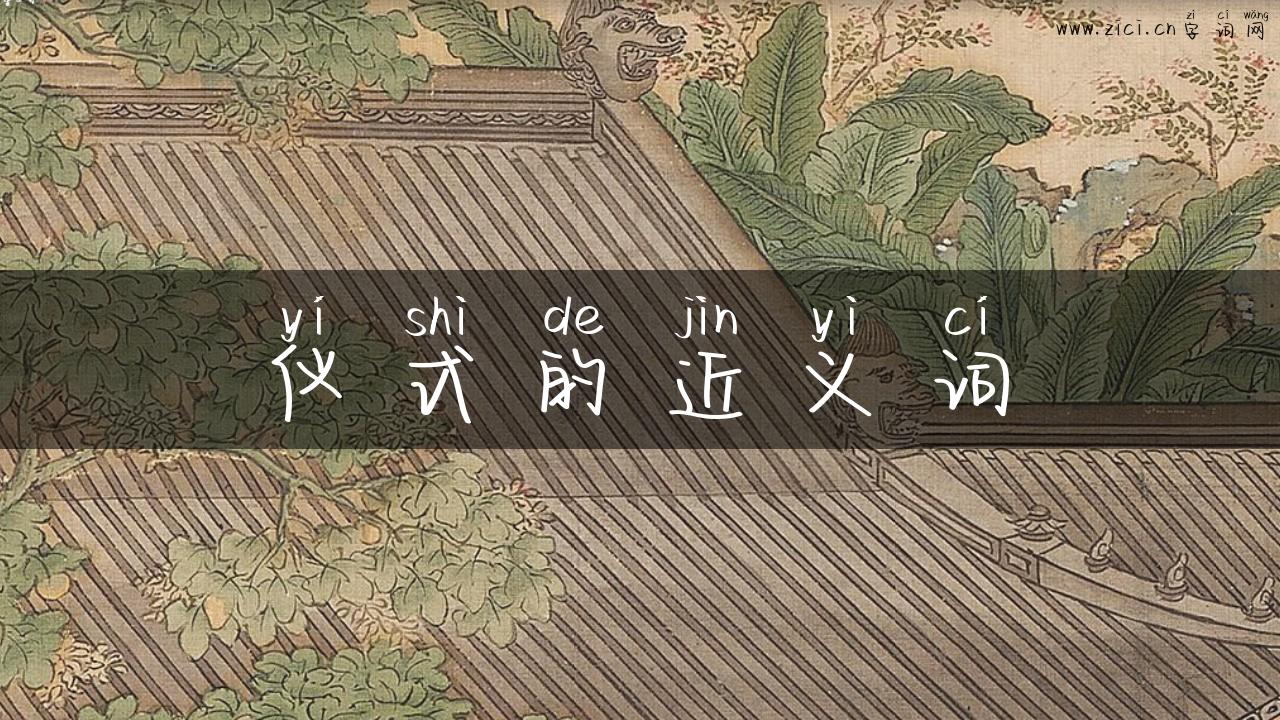 zì cí wǎng
www.zici.cn 字词网
yí shì de jìn yì cí
仪式的近义词